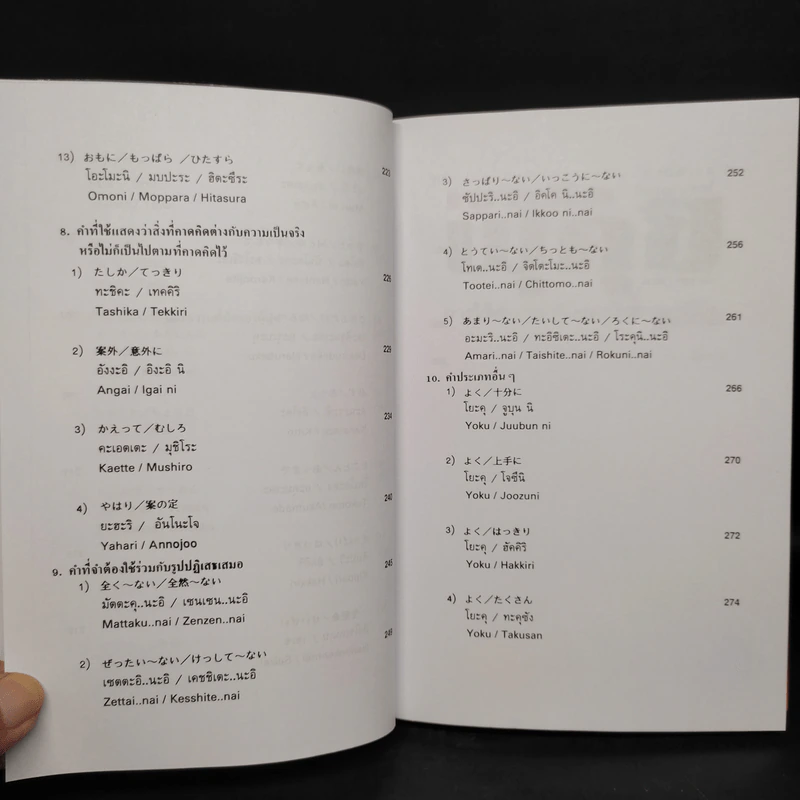 13) おもに／もっぱら ／ひたすら 223
โอะโมะนิ / มบปะระ / ฮิตะซึระ
Omoni / Moppara / Hitasura
8. คำที่ใช้แสดงว่าสิ่งที่คาดคิดต่างกับความเป็นจริง
หรือไม่ก็เป็นไปตามที่คาดคิดไว้
1) たしか／てっきり 226
ทะชิคะ / เทคคิริ
Tashika / Tekkiri
2) 案外／意外に 229
อังงะอิ / อิงะอิ นิ
Angai / Igai ni
3) かえって／むしろ 234
คะเอตเตะ / มุชิโระ
Kaette / Mushiro
4) やはり／案の定 240
ยะฮะริ / อันโนะโจ
Yahari / Annojoo
9. คำที่จำต้องใช้ร่วมกับรูปปฏิเสธเสมอ 245
1) 全く〜ない／全然〜ない
มัตตะคุ..นะอิ / เซนเซน..นะอิ
Mattaku..nai / Zenzen..nai
2) ぜったい〜ない／けっして〜ない 249
เซตตะอิ..นะอิ / เคชชิเตะ..นะอิ
Zettai..nai / Kesshite..nai
3) さっぱり〜ない／いっこうに〜ない 252
ซัปปะริ..นะอิ / อิคโค นิ..นะอิ
Sappari..nai / Ikkoo ni..nai
4) とうてい〜ない／ちっとも〜ない 256
โทเต..นะอิ / จิตโตะโมะ..นะอิ
Tootei..nai / Chittomo..nai
5) あまり〜ない／たいして〜ない／ろくに〜ない 261
อะมะริ..นะอิ / ทะอิชิเตะ..นะอิ / โระคุนิ..นะอิ
Amari..nai / Taishite..nai / Rokuni..nai
10. คำประเภทอื่น ๆ
1) よく／十分に 266
โยะคุ / จูบุน นิ
Yoku / Juubun ni
2) よく／上手に 270
โยะคุ / โจซึนิ
Yoku / Joozuni
3) よく／はっきり 272
โยะคุ / ฮัคคิริ
Yoku / Hakkiri
4) よく／たくさん 274
โยะคุ / ทะคุซัง
Yoku / Takusan